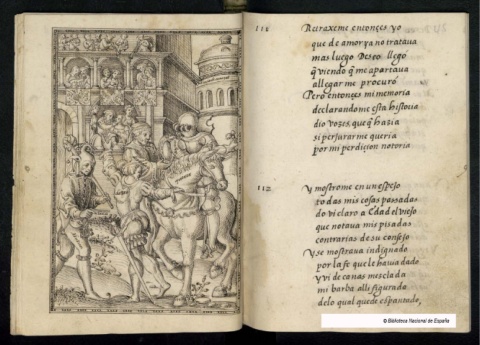 111
Retraxeme entonçes yo
que de amor ya no tratava
mas luego Deseo llegó
q̃ viendo q̃ me apartava
allegar me procuró
Pero entonçes mi memoria
declarandome esta historia
dio vozes, que q̃ hazia
si perjurarme queria
por mi perdiçion notoria
112
Y mostrome en un espejo
todas mis cosas passadas
do vi claro a Edad el viejo
que notava mis pisadas
contrarias de su consejo
Y se mostrava indignado
por la fe que le havia dado
y vi de canas mezclada
mi barba alli figurado
delo qual quede espantado,
© Biblioteca Nacional de España